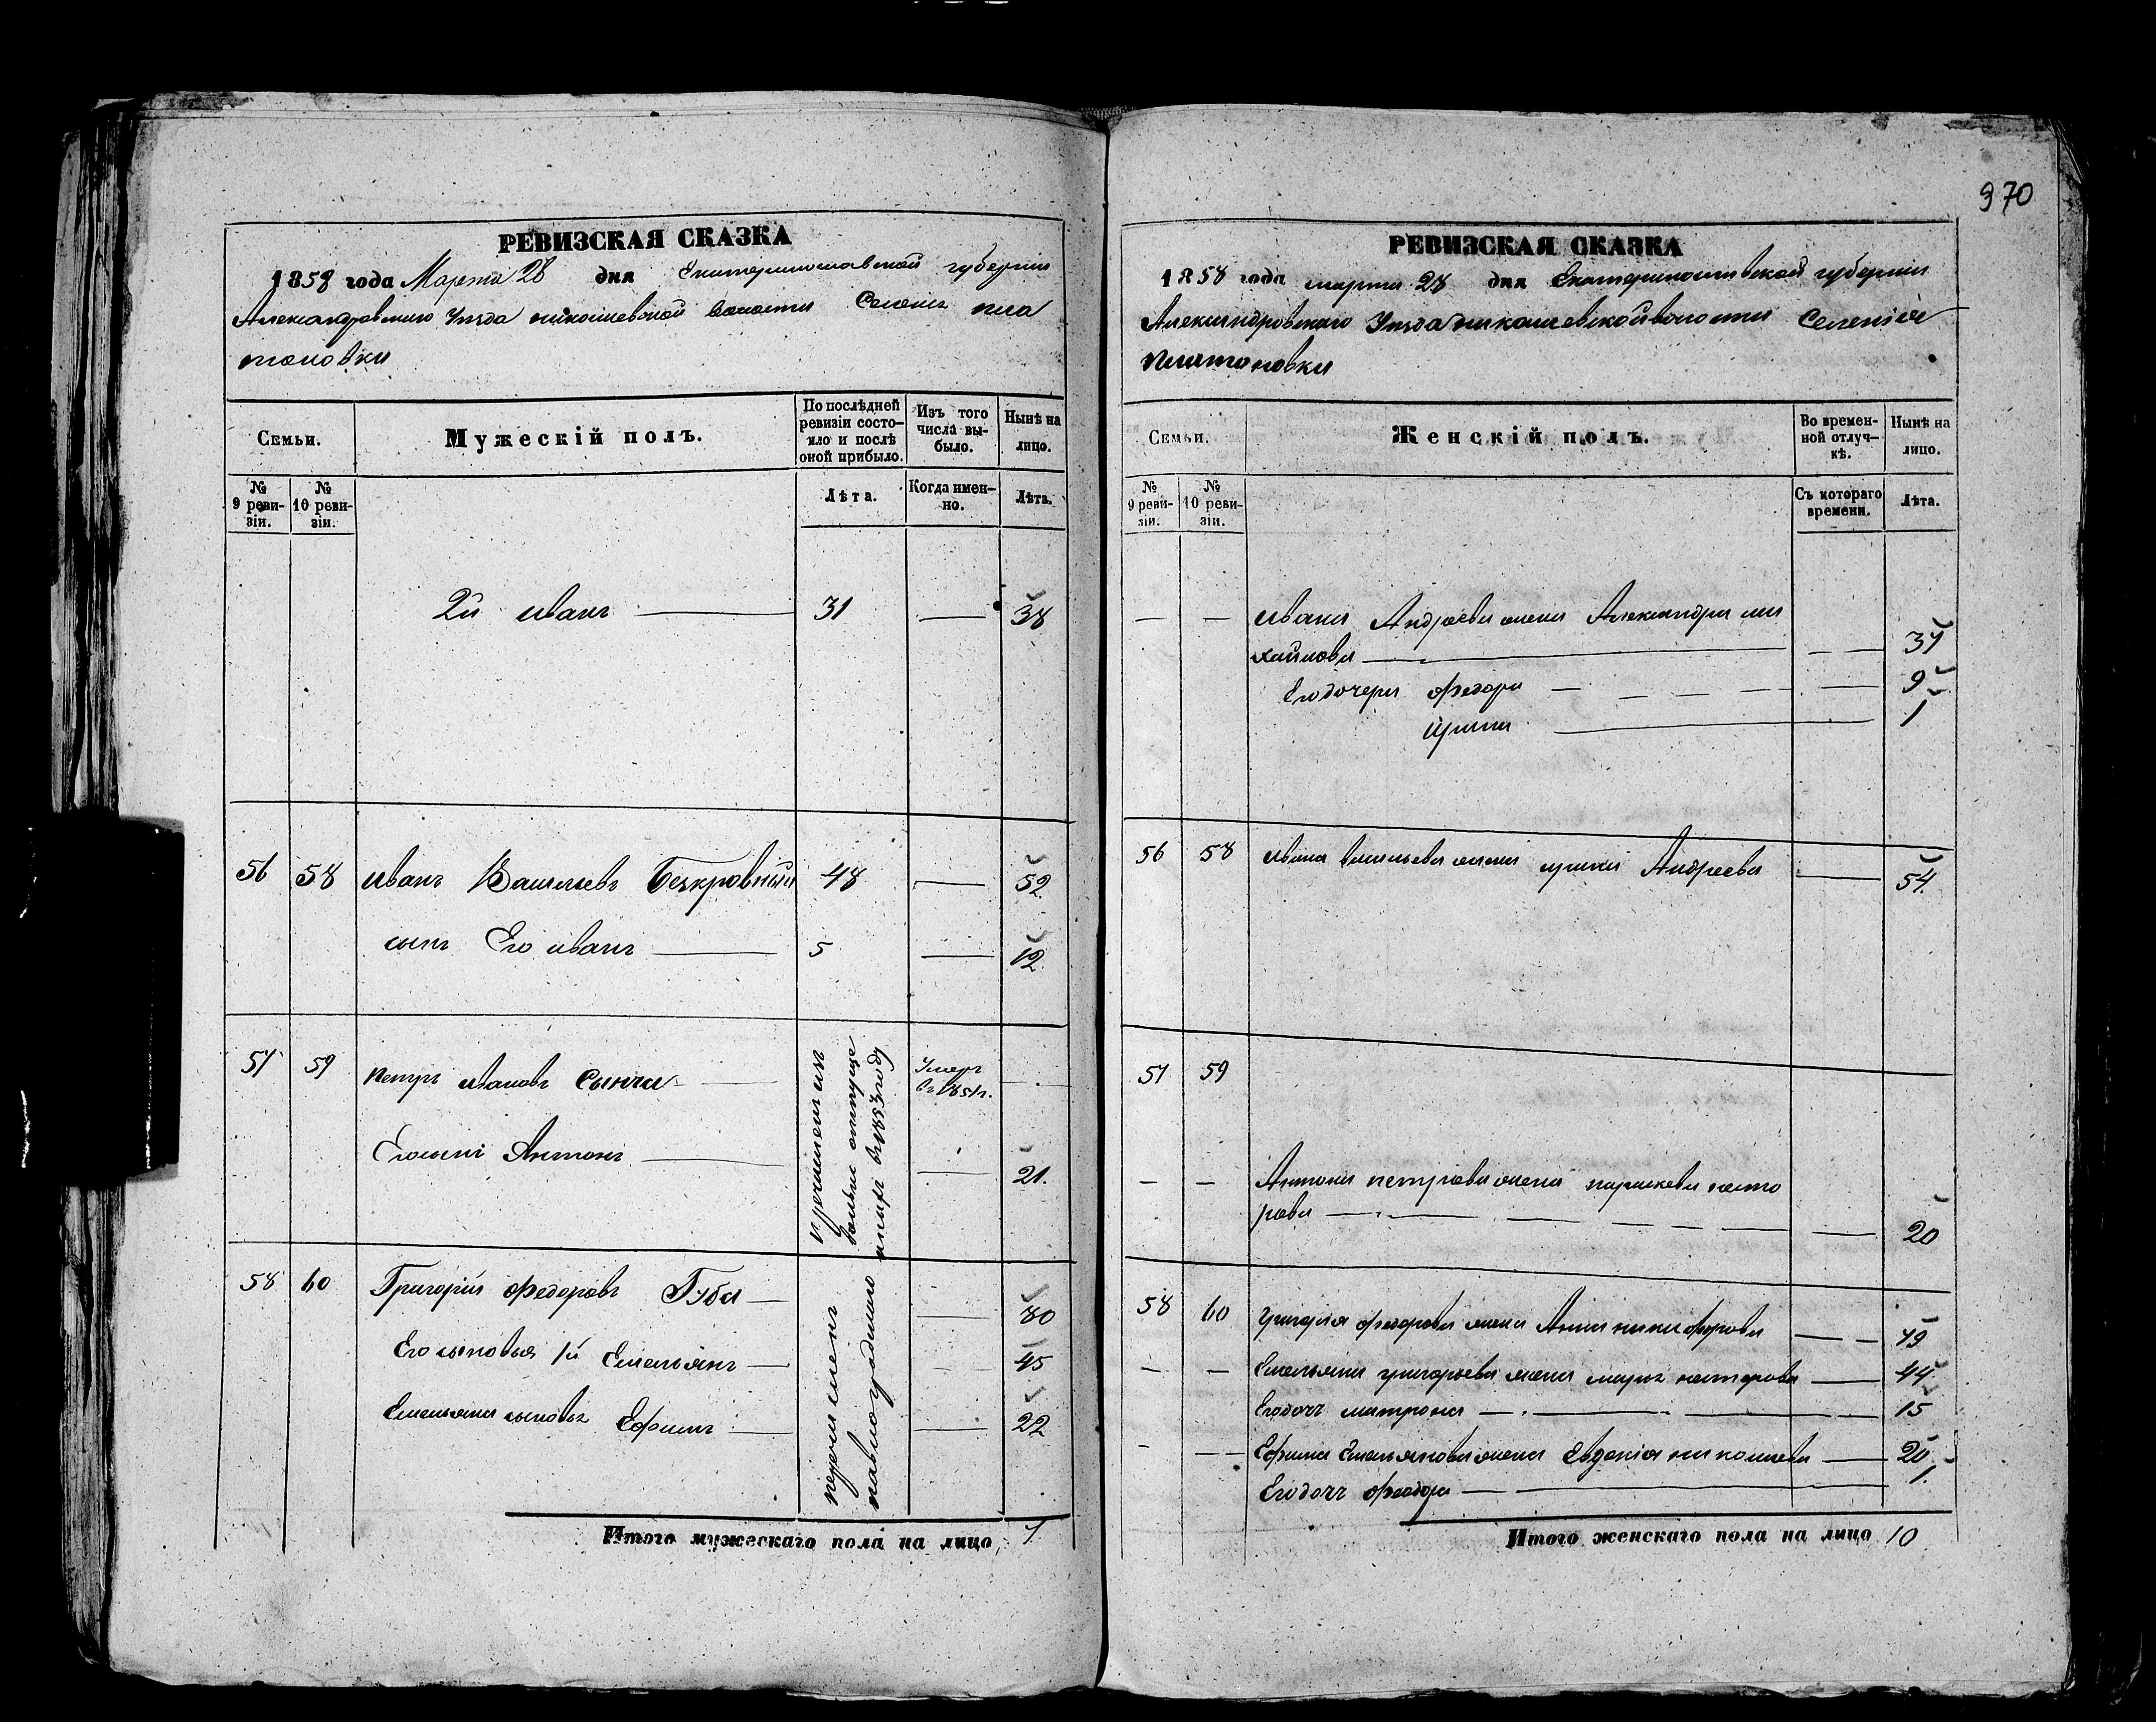 970
РЕВИЗСКАЯ СКАЗКА
1858 года Марта 28 дня Екатеринославской губернии
Александровского Уезда николаевской волости Селения пла
тоновки
Семьи.
Мужескій полъ.
По послѣдней ревизіи состо-яло и послѣ оной прибыло.
Изъ того числа вы-было.
Нынѣ на лицо.
№ 9 реви-зіи.
№ 10 реви-зіи.
Лѣта.
Когда имен-но.
Лѣта.
2й иванъ 31 38
56 58 иванъ Васильевъ Безкровный 48 52
сынъ Его иванъ 5 12
57 59 петръ ивановъ Сынча Умеръ въ 1851г.
Егосынъ Антонъ 21.
причисленъ изъ
вольно отпуще
ныхъ въ 1853 году
58 60 Григорій федоровъ Губа 80
Его сыновья 1й Емельянъ 45
Емельяна сыновья Ефимъ 22
перечисленъ
павлоградского
Итого мужескаго пола на лицо 7
РЕВИЗСКАЯ СКАЗКА
1858 года марта 28 дня Екатеринославской губернии
Александровского Уезда николаевской волости Селенія
платоновки
Семьи.
Женскій полъ.
Во времен-ной отлуч-кѣ.
Нынѣ на лицо.
№ 9 реви-зіи.
№ 10 реви-зіи.
Съ котораго времени.
Лѣта.
ивана Андреева жена Александра ми
хайлова 37
Егодочери федора 9
Ирина 1
56 58 ивана васильева жена ирина Андреева 54.
57 59
Антона петрова жена параскева несто
рова 20
58 60 григорія федорова жена Анна никифорова 49
Емельяна григорьева жена нестерова 44
Егодочь матрона 15
Ефима Емельянова жена Евдокія николаева 20
Егодочь феодора 1
Итого женскаго пола на лицо 10